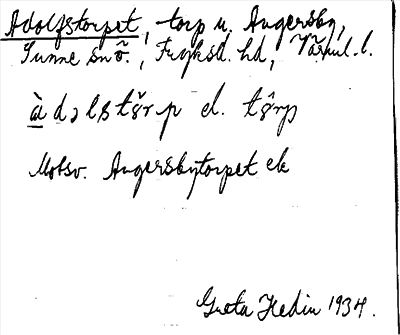 Adolfstorpet, torp u. Angersby,
Sunne snö., Fryksd. hd, Värml. l.
àdəlstŏrp el. tôrp
Motsv. Angersbytorpet ek
Greta Hedin 1934.